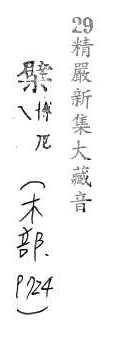 29精嚴新集大藏音
博厄
(木部.
P724)